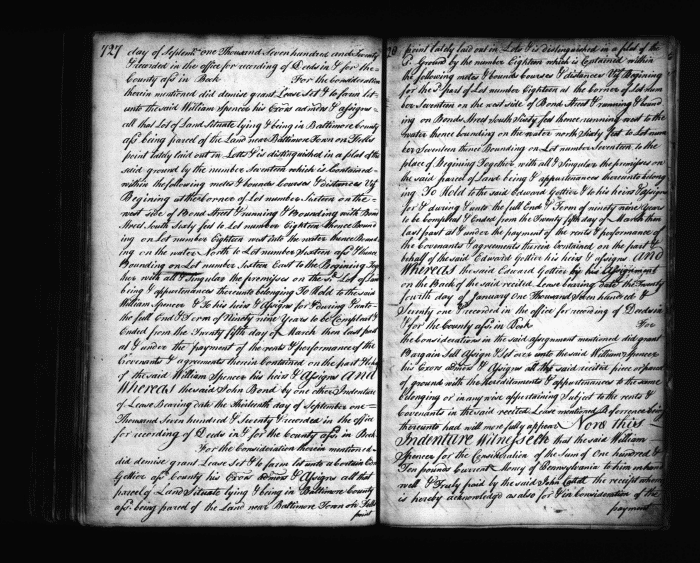 727
day of Septemr. one Thousand Seven hundred and Seventy
& recorded in the office for recording of Deeds in & for the
County afs in Book For the Consideration
therein mentioned did demise grant Lease Set & to farm let
unto the said William Spencer his Exors adminrs & Assigns
all that Lot of Land Situate lying & being in Baltimore County
afs being parcel of the Land near Baltimore Town on Fells
point lately laid out in Lots & is distinguished in a plot of the
said ground by the number Seventeen which is Contained
within the following metes & bounds Courses & distances Viz
Begining at the corner of Lot number Sixteen on the
west side of Bond Street & running & Bounding with Bond
Street South Sixty feet to Lot number Eighteen thence Bound
ing on Lot number Eighteen west into the water thence Bound
ing on the water North to Lot number Sixteen afs & thence
Bounding on Lot number Sixteen East to the Begining Toge
ther with all & Singular the premises on the sd. Lot of Land
being & appertenances thereunto belonging To Hold to the said
William Spencer & To his heirs & Assigns for & during & unto
the full End & Term of Ninety nine Years to be Compleat &
Ended from the Twenty fifth day of March then last past
at & under the payment of the rents & performance of the
Covenants & agreements therein Contained on the part & behalf
of the said William Spencer his heirs & Assigns And
Whereas the said John Bond by one other Indenture
of Lease Bearing date the Thirteenth day of September one
Thousand Seven hundred & Seventy & recorded in the office
for recording of Deeds in & for the County afs in Book
For the Consideration therein mentioned
did demise grant Lease Set & to farm let unto a Certain Edw
Gottier afs County his Exors admrs & Assigns all that
parcel of Land Situate lying & being in Baltimore County
afs. being parcel of the Land near Baltimore Town on Fells
point
point lately laid out in Lots & is distinguished in a plot of the
sd. ground by the number Eighteen which is Contained within
the following metes & bounds Courses & distances Viz Begining
for the sd part of Lot number Eighteen at the Corner of Lot num
ber Seventeen on the west side of Bond Street & running & bound
ing on Bonds Street South Sixty feet thence running west to the
water thence bounding on the water north Sixty feet to Lot num
ber Seventeen thence Bounding on Lot number Seventeen to the
place of Begining Together with all & Singular the premises on
the said parcel of Land being & appertenances thereunto belong
ing To Hold to the said Edward Gottier & to his heirs & Assigns
for & during & unto the full End & Term of ninety nine Years
to be Compleat & Ended from the Twenty fifth day of March then
last past at & under the payment of the rents & performance of
the Covenants & agreements therein Contained on the part &
behalf of the said Edward Gottier his heirs & Assigns And
Whereas the said Edward Gottier by his Assignment
on the Back of the said recited Lease bearing date the Twenty
fourth day of January One Thousand Seven hundred &
Seventy one & recorded in the office for recording of Deeds in
& for the County afs in Book For
the Considerations in the said Assignment mentioned did grant
Bargain Sell Assign & Set over unto the said William Spencer
his Exors admrs & Assigns all the said recited piece or parcel
of ground with the Hereditements & appertenances to the same
belonging or in any wise appertaining Subject to the rents &
Covenants in the said recited Lease mentioned reference being
thereunto had will more fully appear Now this
Indenture Witnesseth that the said William
Spencer for the Consideration of the Sum of One hundred &
Ten pounds Current Money of Pennsylvania to him in hand
well & Truly paid by the said John the receipt whereof
is hereby acknowledged as also for & in Consideration of the
payment